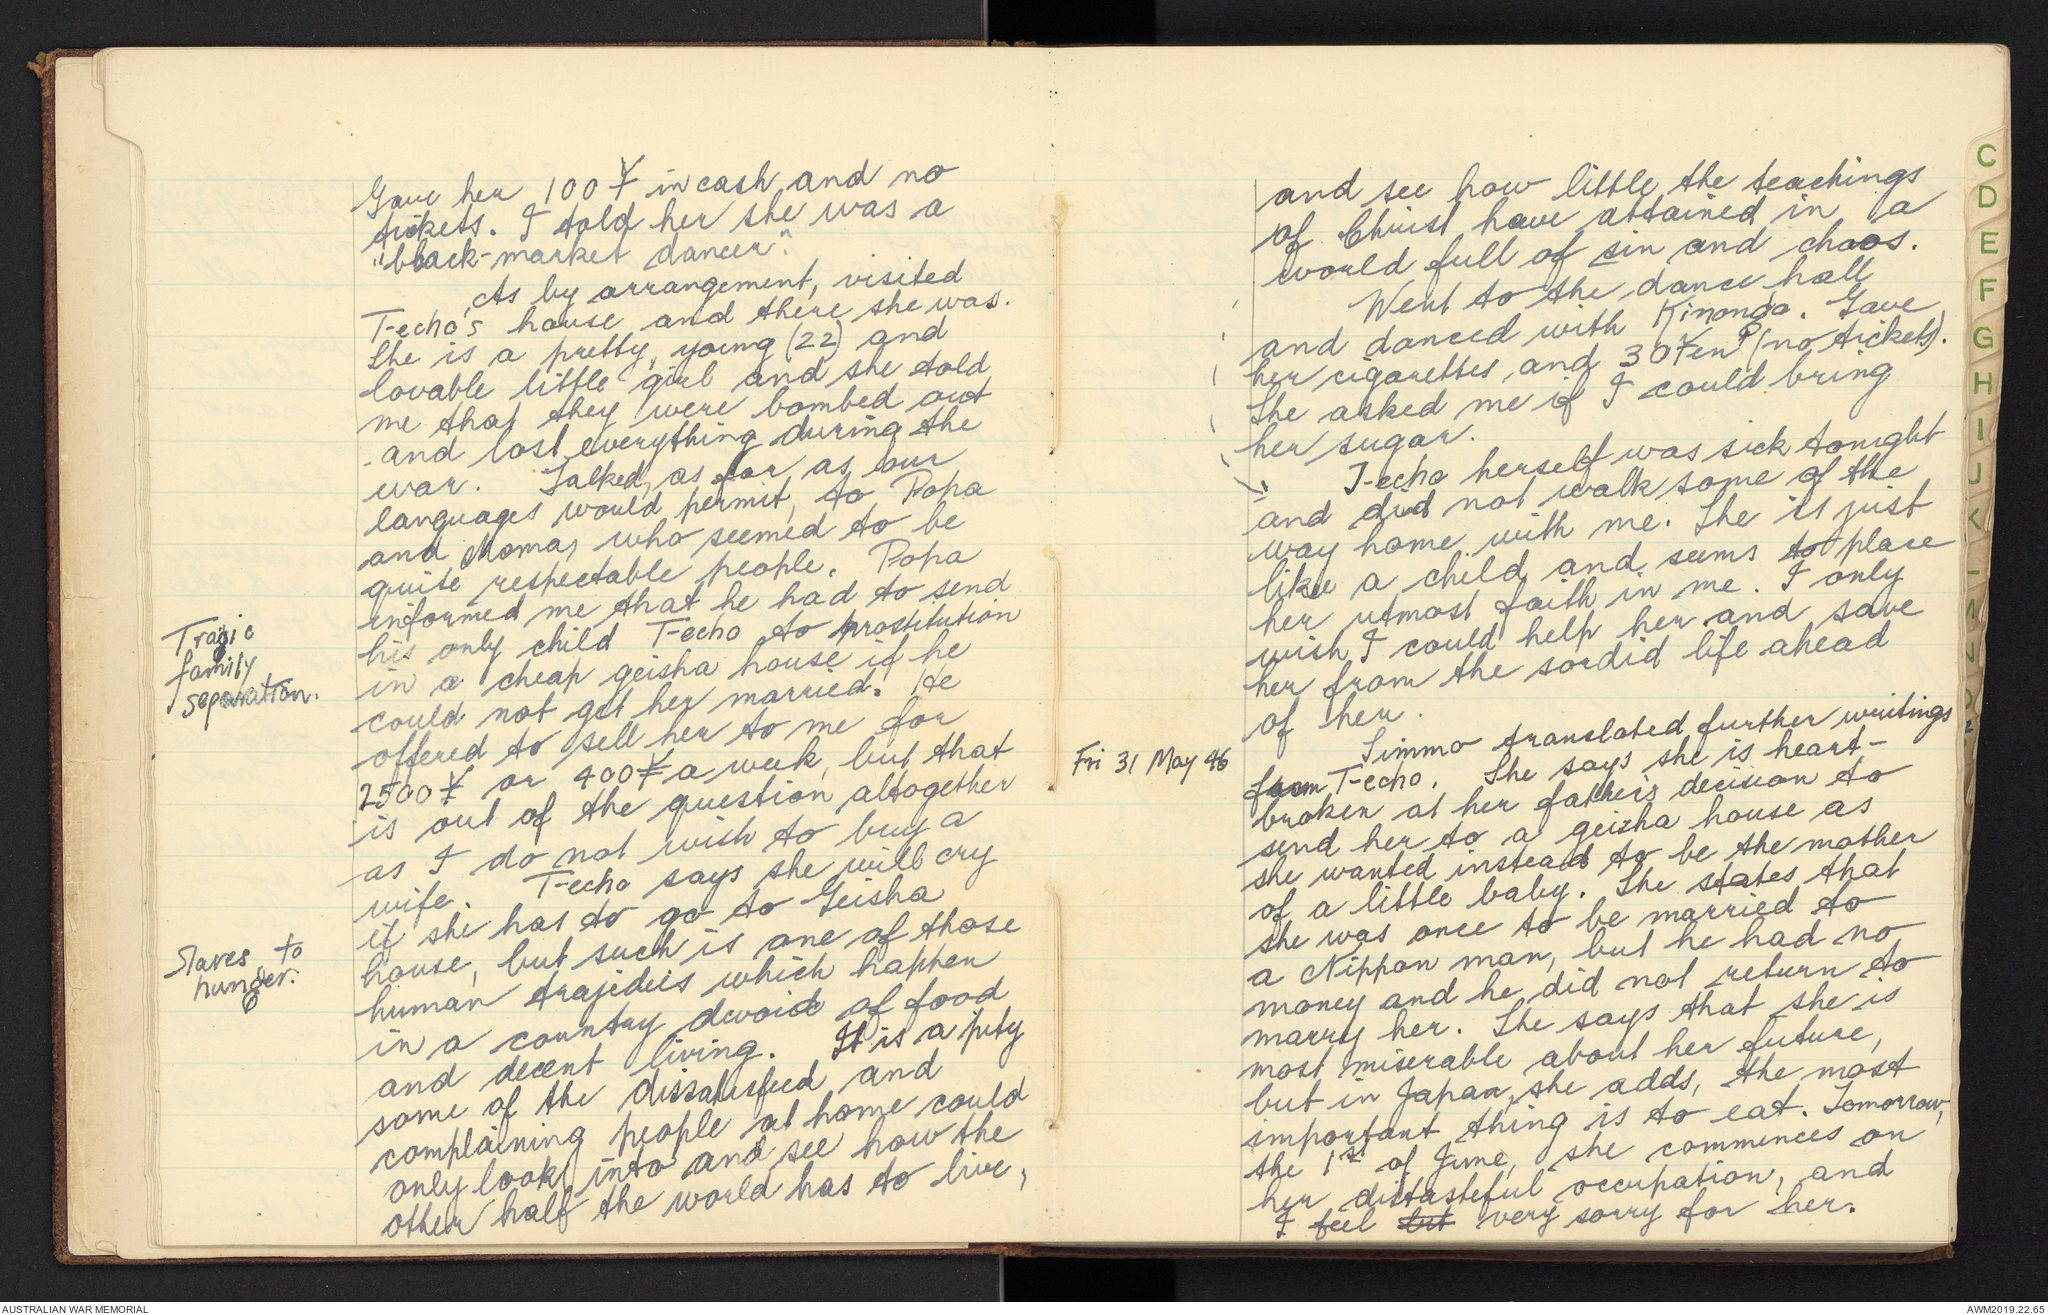 Gave her 100 ¥ in cash and no
tickets. I told her she was a
"black-market dancer".
As by arrangement, visited
T-echo's house and there she was.
She is a pretty, young (22) and
lovable little girl and she told
me that they were bombed out
and lost everything during the
war. Talked, as far as our
languages would permit, to Popa
and Moma, who seemed to be
quite respectable people. Popa
informed me that he had to send
Tragic
family
separation.
his only child T-echo to prostitution
in a cheap geisha house if he
could not get her married. He
offered to sell her to me for
2500 ¥ or 400 ¥ a week, but that
is out of the question altogether
as I do not wish to buy a
wife. T-echo says she will cry
if she has to go to Geisha
Slaves to
hunger.
house, but such is one of those
human trajideis which happen
in a country devoid of food
and decent living. It is a pity
some of the dissatisfied and
complaining people at home could
only look into and see how the
other half the world has to live,
and see how little the teachings
of Christ have attained in a
world full of sin and chaos.
Went to the dance hall
and danced with Kinonga. Gave
her cigarettes and 30 Yen (no tickets).
She asked me if I could bring
her sugar.
T-echo herself was sick tonight
and did not walk some of the
way home with me. She is just
like a child and seems to place
her utmost faith in me. I only
wish I could help her and save
her from the sordid life ahead
of her.
Fri 31 May 46
Simmo translated further writings
from T-echo. She says she is heart-
broken at her father's decision to
send her to a geisha house as
she wanted instead to be the mother
of a little baby. She states that
she was once to be married to
a Nippon man, but he had no
money and he did not return to
marry her. She says that she is
most miserable about her future,
but in Japan, she adds, the most
important thing is to eat. Tomorrow,
the 1st of June, she commences on
her distasteful occupation, and
I feel but very sorry for her.
C
D
E
F
G
H
I
J
K
AUSTRALIAN WAR MEMORIAL
AWM2019.22.65